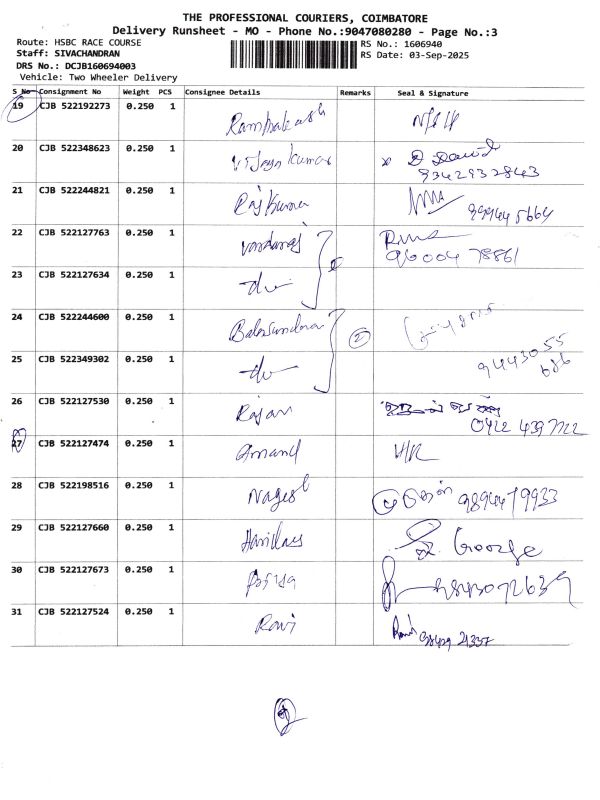 THE PROFESSIONAL COURIERS, COIMBATORE
Delivery Runsheet - MO - Phone No.:9047080280 - Page No.:3
Route: HSBC RACE COURSE
RS No.: 1606940
Staff: SIVACHANDRAN
RS Date: 03-Sep-2025
DRS No.: DCJB160694003
Vehicle: Two Wheeler Delivery
S No Consignment No Weight PCS Consignee Details Remarks Seal & Signature
19 CJB 522192273 0.250 1
20 CJB 522348623 0.250 1 Vijaya Kumar D David
9342932843
21 CJB 522244821 0.250 1 Raj Kumar
22 CJB 522127763 0.250 1
96004 78861
23 CJB 522127634 0.250 1
24 CJB 522244600 0.250 1 2
25 CJB 522349302 0.250 1 9443055
686
26 CJB 522127530 0.250 1 Rajan
0422 439 7722
27 CJB 522127474 0.250 1 Anand
28 CJB 522198516 0.250 1 Nagesh 9894479933
29 CJB 522127660 0.250 1 Haridass George
30 CJB 522127673 0.250 1
31 CJB 522127524 0.250 1 Ravi